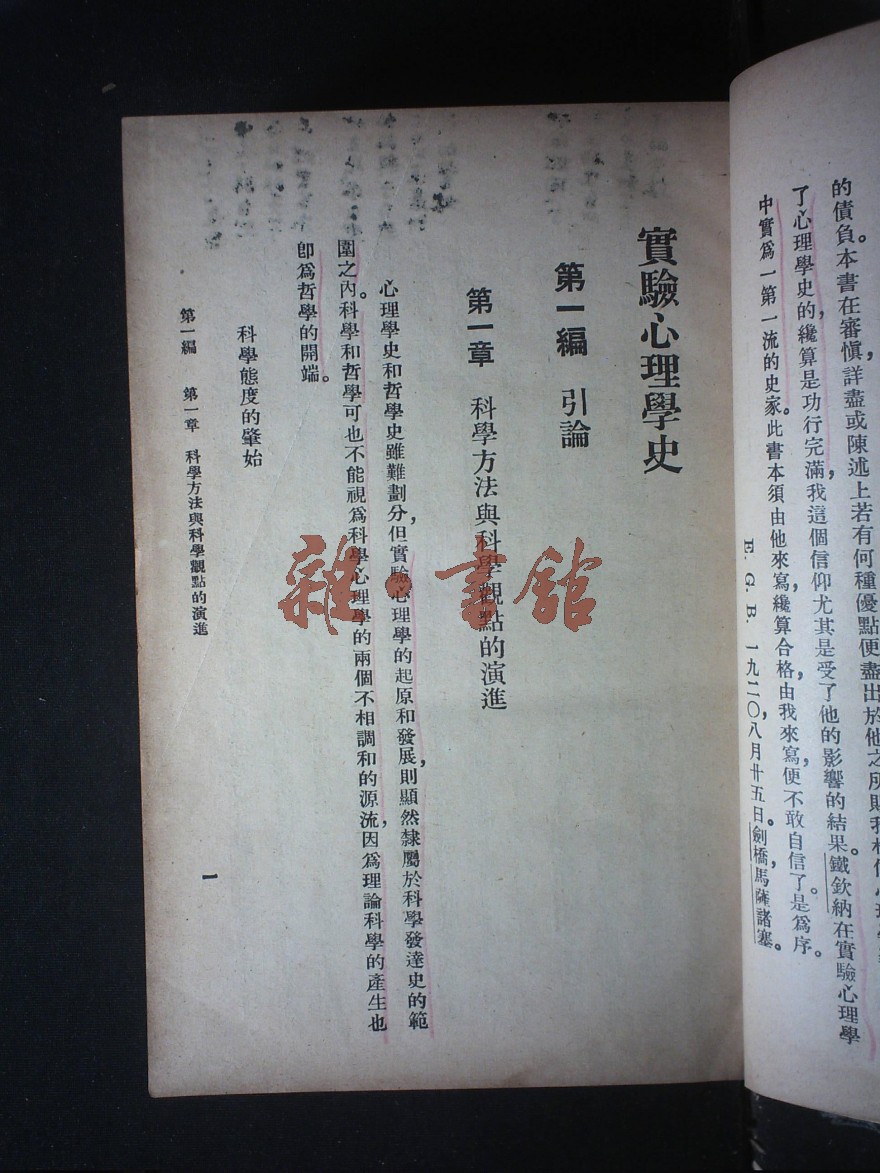 的債負。本書在審愼詳盡或陳述上若有何種優點，便盡出於他之所賜我相信心理學
了心理學史的，纔算是功行完滿，我這個信仰尤其是受了他的影響的結果。鐵欽納在實驗心理學
中實爲一第一流的史家。此書本須由他來寫，纔算合格，由我來寫，便不敢自信了。是爲序。
E. G. B. 一九二〇，八月卄五日。劍橋，馬薩諸塞。
實驗心理學史
第一編 引論
第一章 科學方法與科學觀點的演進
心理學史和哲學史雖難劃分，但實驗心理學的起原和發展，則顯然隸屬於科學發達史的範
圍之內。科學和哲學可也不能視爲科學心理學的兩個不相調和的源流，因爲理論科學的產生也
卽爲哲學的開端。
科學態度的肇始
第一編 第一章 科學方法與科學觀點的演進
一
雜·書館